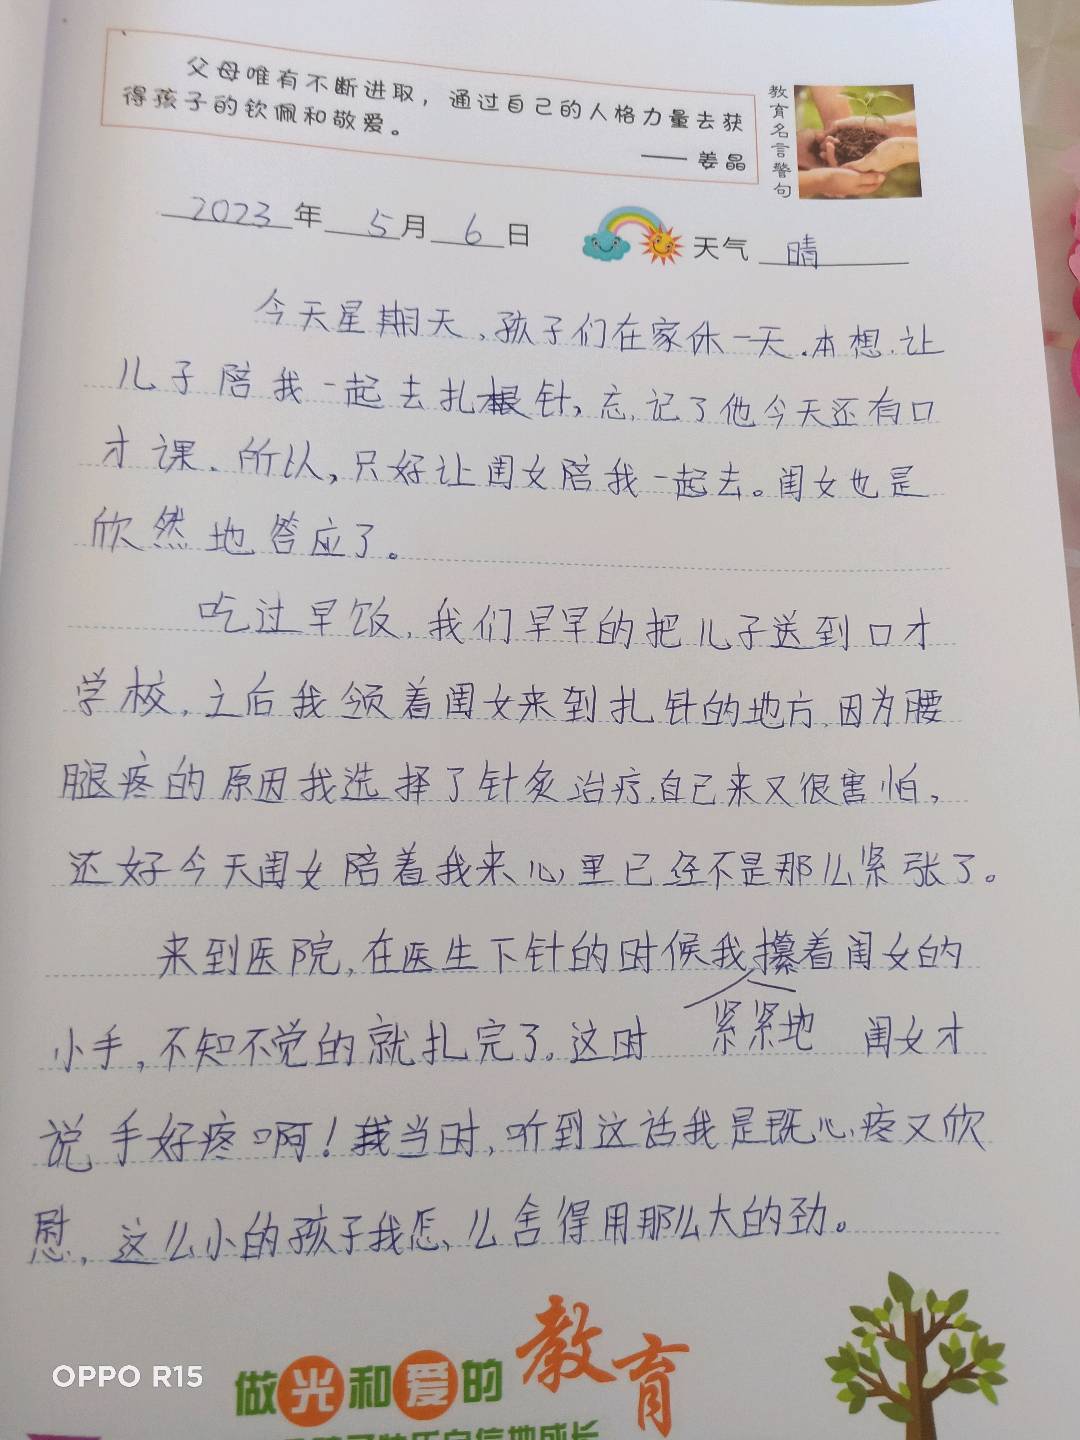 父母唯有不断进取，通过自己的人格力量去获
得孩子的钦佩和敬爱。
—— 姜晶
教育名言警句
2023年 5月 6日 天气 晴
今天星期天，孩子们在家休一天.本想.让
儿子陪我一起去扎根针，忘.记了他今天还有口
才课、所以，只好让闺女陪我一起去。闺女也是
欣然地答应了。
吃过早饭，我们早早的把儿子送到口才
学校，之后我领着闺女来到扎针的地方，因为腰
腿疼的原因我选择了针灸治疗，自己来又很害怕，
还好今天闺女陪着我来心里已经不是那么紧张了。
来到医院，在医生下针的时候我攥着闺女的
紧紧地
小手，不知不觉的就扎完了。这时 闺女才
说手好疼啊！我当时，听到这话我是既心疼又欣
慰，这么小的孩子我怎么舍得用那么大的劲。
做光和爱的教育
OPPO R15